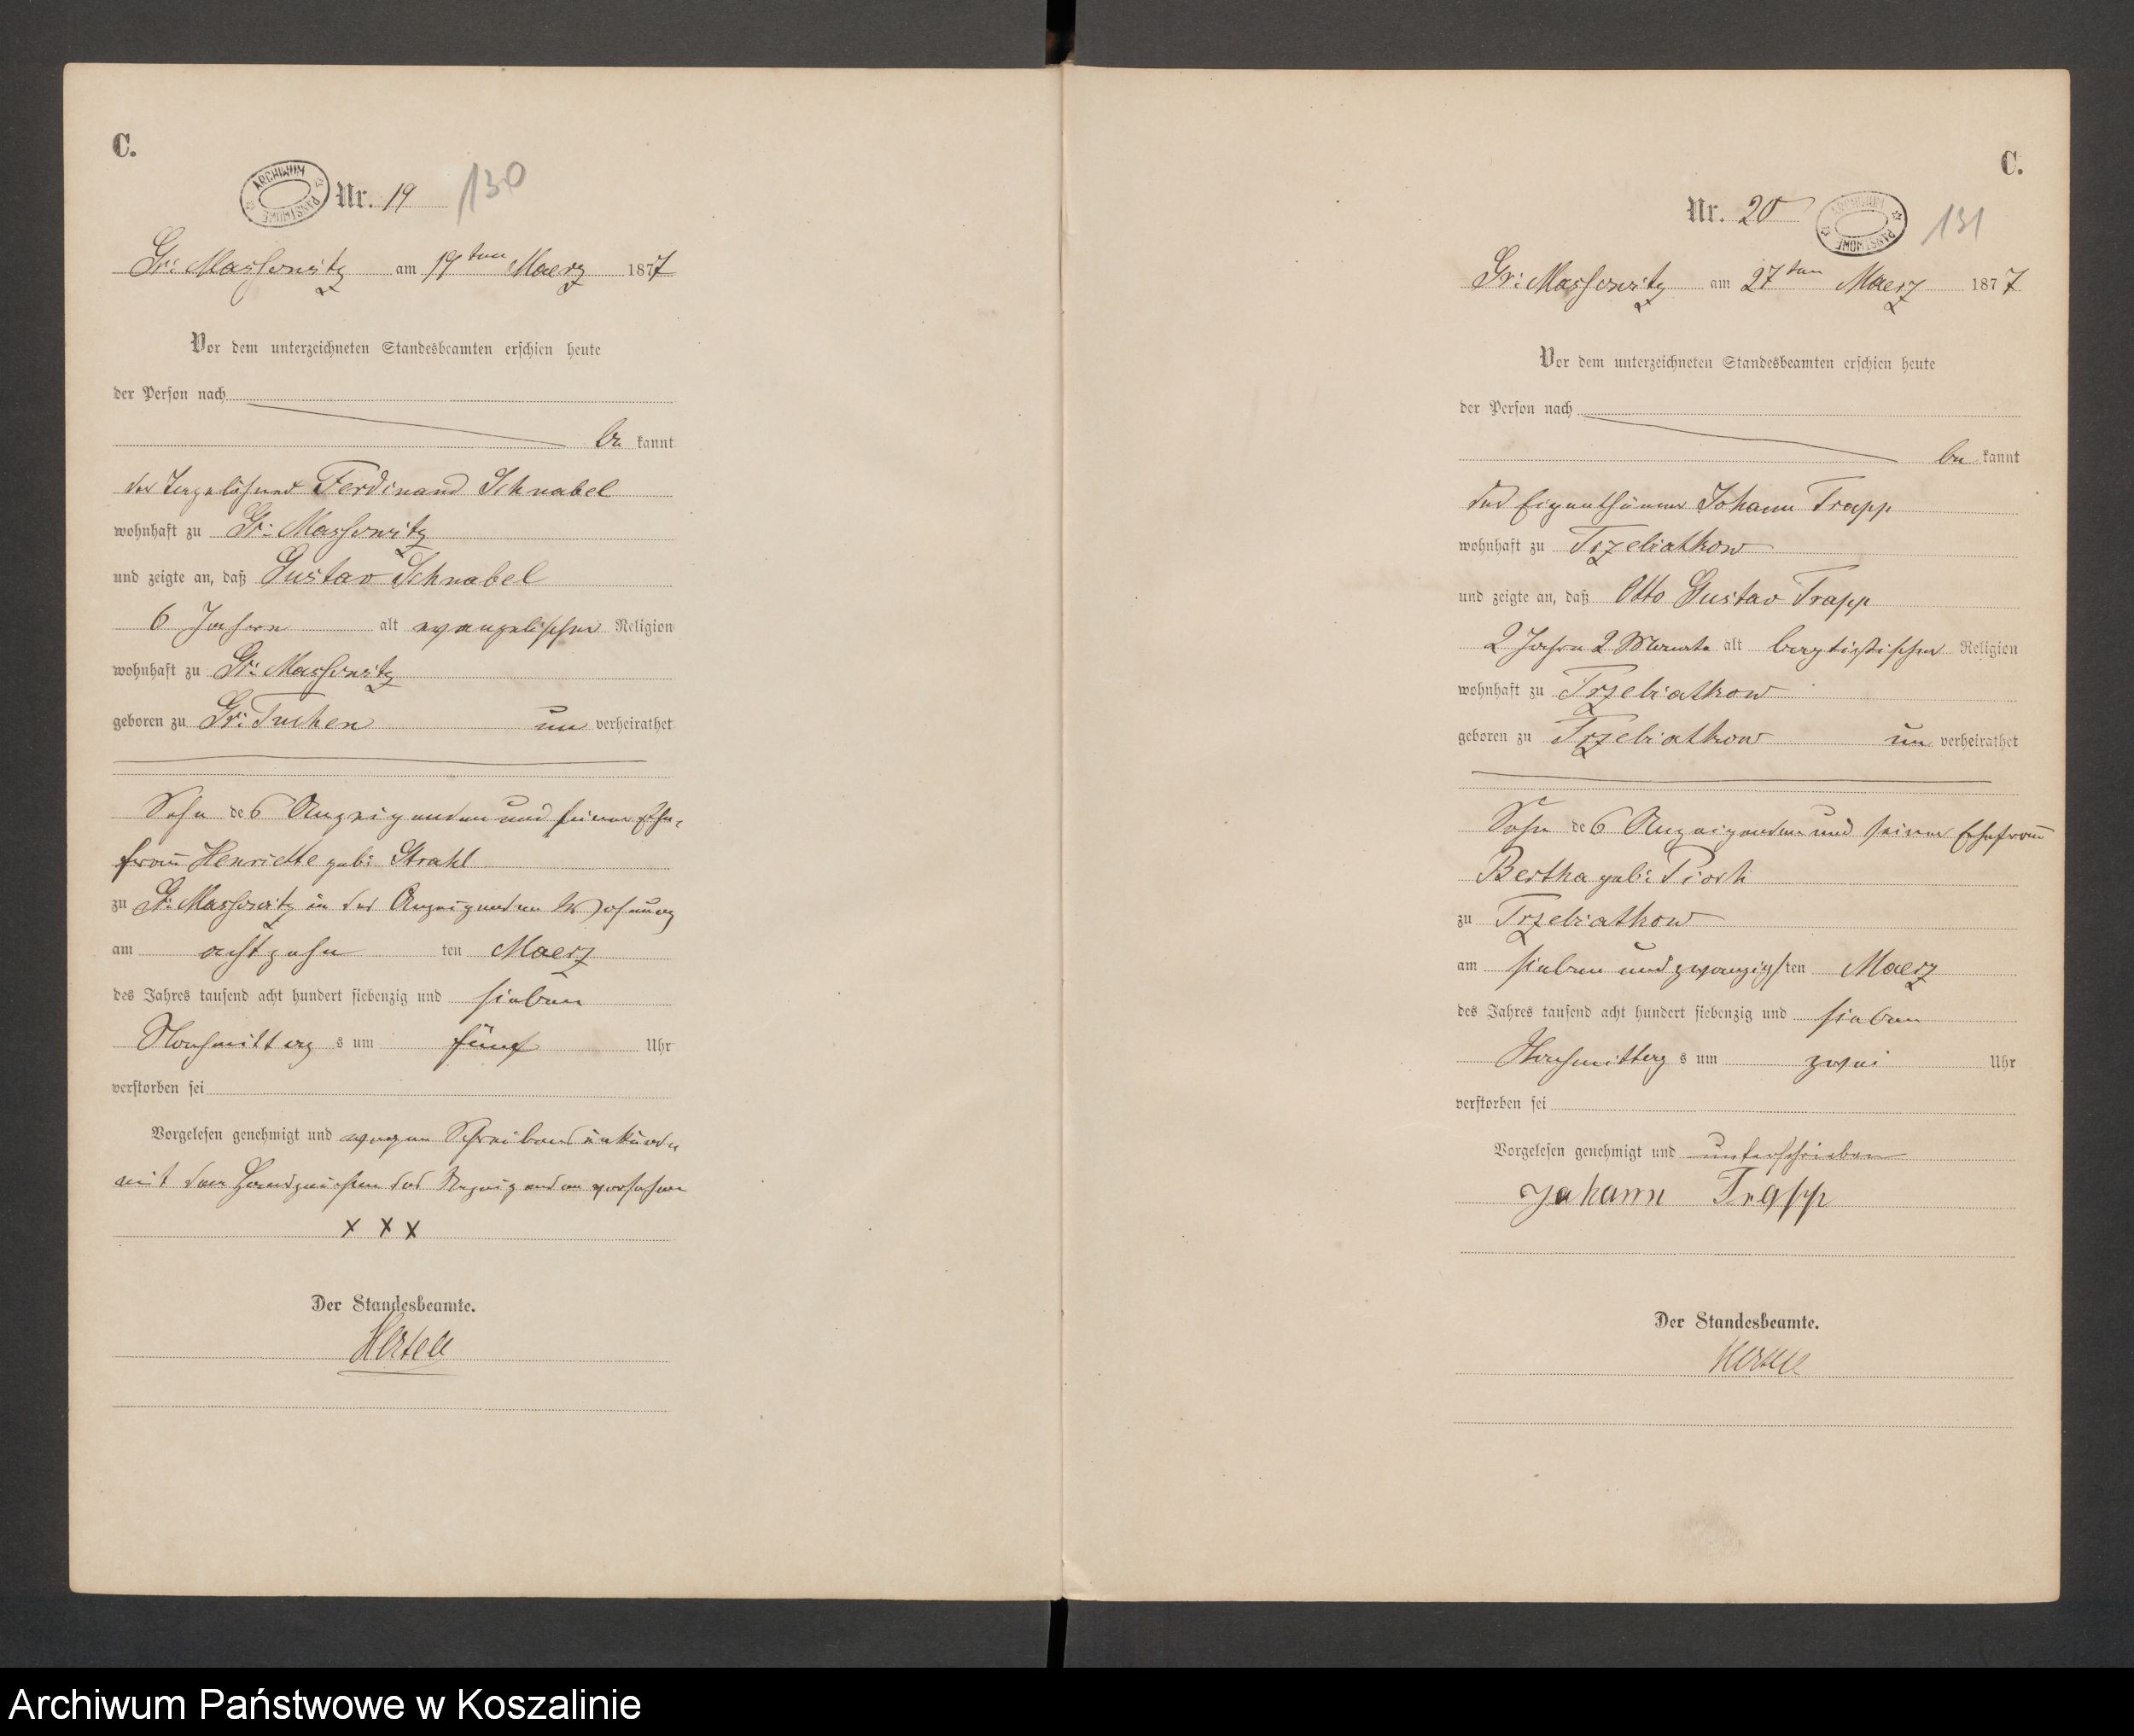 C.
ARCHIWUM PAŃSTWOWE
Nr. 19
130
Gr: Massowitz am 19ten Maerz 1877
Vor dem unterzeichneten Standesbeamten erschien heute
der Person nach
be kannt
der Tagelöhner Ferdinand Schnabel
wohnhaft zu Gr: Massowitz
und zeigte an, daß Gustav Schnabel
6 Jahren alt evangelischer Religion
wohnhaft zu Gr: Massowitz
geboren zu Gr: Tuchen un verheirathet
Sohn des Anzeigenden und seiner Ehe-
frau Henriette geb: Strahl
zu Gr: Massowitz in der Anzeigenden Wohnung
am achtzehn ten Maerz
des Jahres tausend acht hundert siebenzig und sieben
Nachmittag s um fünf Uhr
verstorben sei
Vorgelesen genehmigt und wegen Schreibensunkunde
mit dem Handzeichen des Anzeigenden versehen
x x x
Der Standesbeamte.
Hertell
C.
Nr. 20
ARCHIWUM PAŃSTWOWE
131
Gr: Massowitz am 27ten Maerz 1877
Vor dem unterzeichneten Standesbeamten erschien heute
der Person nach
be kannt
der Eigenthümer Johann Trapp
wohnhaft zu Trzebiatkow
und zeigte an, daß Otto Gustav Trapp
2 Jahre 2 Monate alt baptistischer Religion
wohnhaft zu Trzebiatkow
geboren zu Trzebiatkow un verheirathet
Sohn des Anzeigenden und seiner Ehefrau
Bertha geb: Piork
zu Trzebiatkow
am sieben und zwanzigsten Maerz
des Jahres tausend acht hundert siebenzig und sieben
Nachmittag s um zwei Uhr
verstorben sei
Vorgelesen genehmigt und unterschrieben
Johann Trapp
Der Standesbeamte.
Hertell
Archiwum Państwowe w Koszalinie